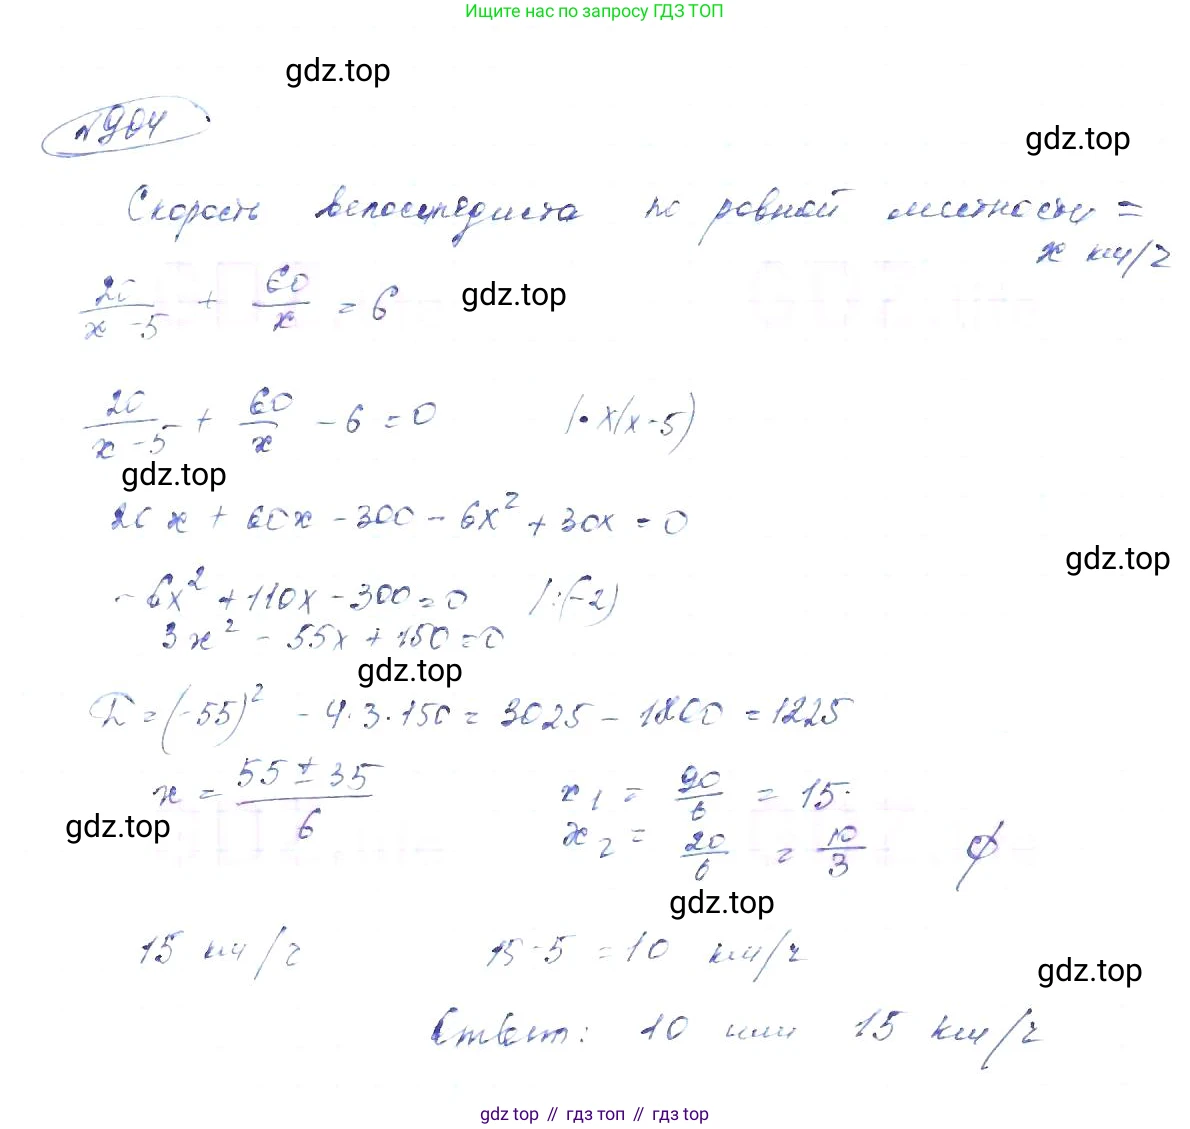 Ищите нас по запросу ГДЗ ТОП
gdz.top
№904
gdz.top
Скорость велосипедиста по ровной местности =
x км/ч
20/(x-5) + 60/x = 6
gdz.top
20/(x-5) + 60/x - 6 = 0 |·x(x-5)
gdz.top
20x + 60x - 300 - 6x² + 30x = 0
gdz.top
-6x² + 110x - 300 = 0 |:(-2)
3x² - 55x + 150 = 0
gdz.top
D = (-55)² - 4·3·150 = 3025 - 1800 = 1225
x = (55 ± 35)/6
x₁ = 90/6 = 15.
gdz.top
x₂ = 20/6 = 10/3 ∅
gdz.top
15 км/ч 15-5 = 10 км/ч
gdz.top
Ответ: 10 или 15 км/ч
gdz top // гдз топ // gdz top